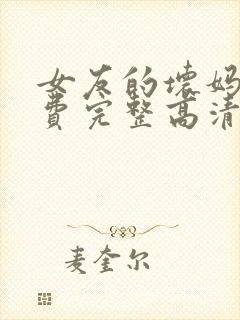 女友的坏妈
费完整高清
麦奎尔